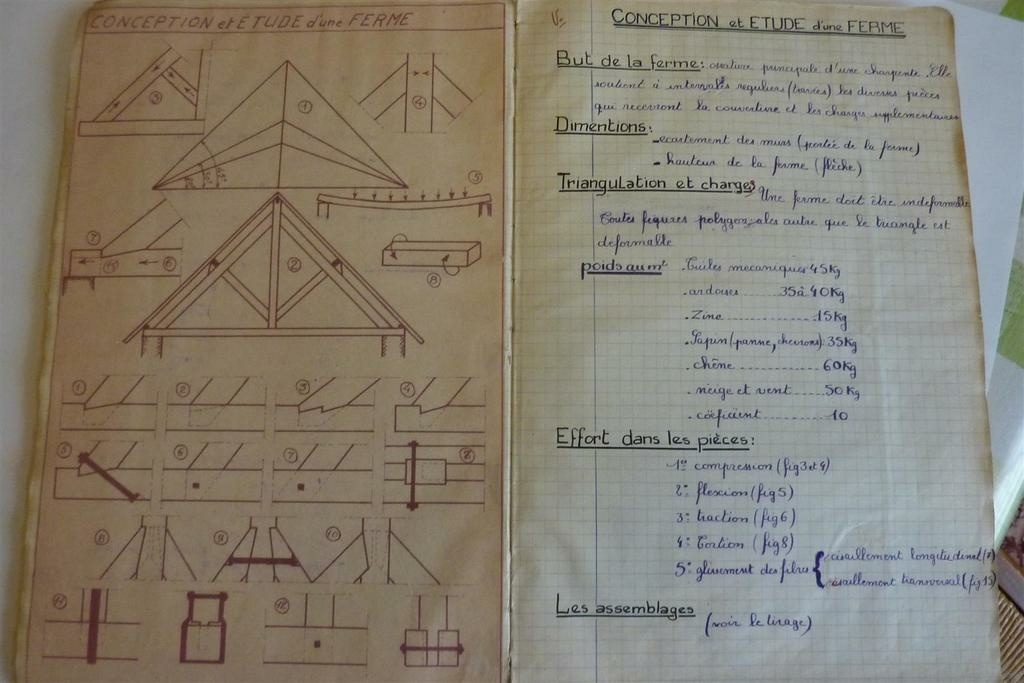 CONCEPTION et ETUDE d'une FERME
3
1
4
45°
30°
5
7
15
6
2
8
1
2
3
4
5
6
7
8
8
9
10
11
12
V-
CONCEPTION et ETUDE d'une FERME
But de la ferme: ossature principale d'une charpente. Elle
soutient à intervalles reguliers (travées) les diverses pièces
qui recevront la couverture et les charges supplementaires
Dimentions:
- ecartement des murs (portée de la ferme)
- hauteur de la ferme (flèche)
Triangulation et charges Une ferme doit être indeformable
Toutes figures polygonales autre que le triangle est
deformable
poids au m² . Tuiles mecaniques 45 Kg
. ardoises ....... 35 à 40 Kg
. Zinc .................... 15 Kg
. Sapin (panne, chevrons): 35 Kg
. chêne ................ 60 Kg
. neige et vent ...... 50 Kg
. coëficient .......... 10
Effort dans les pièces:
1° compression (fig 3 et 4)
2° flexion (fig 5)
3° traction (fig 6)
4° Tortion (fig 8)
5° glissement des fibres { cisaillement longitudinal (7)
cisaillement transversal (fig 15)
Les assemblages
(voir le tirage)